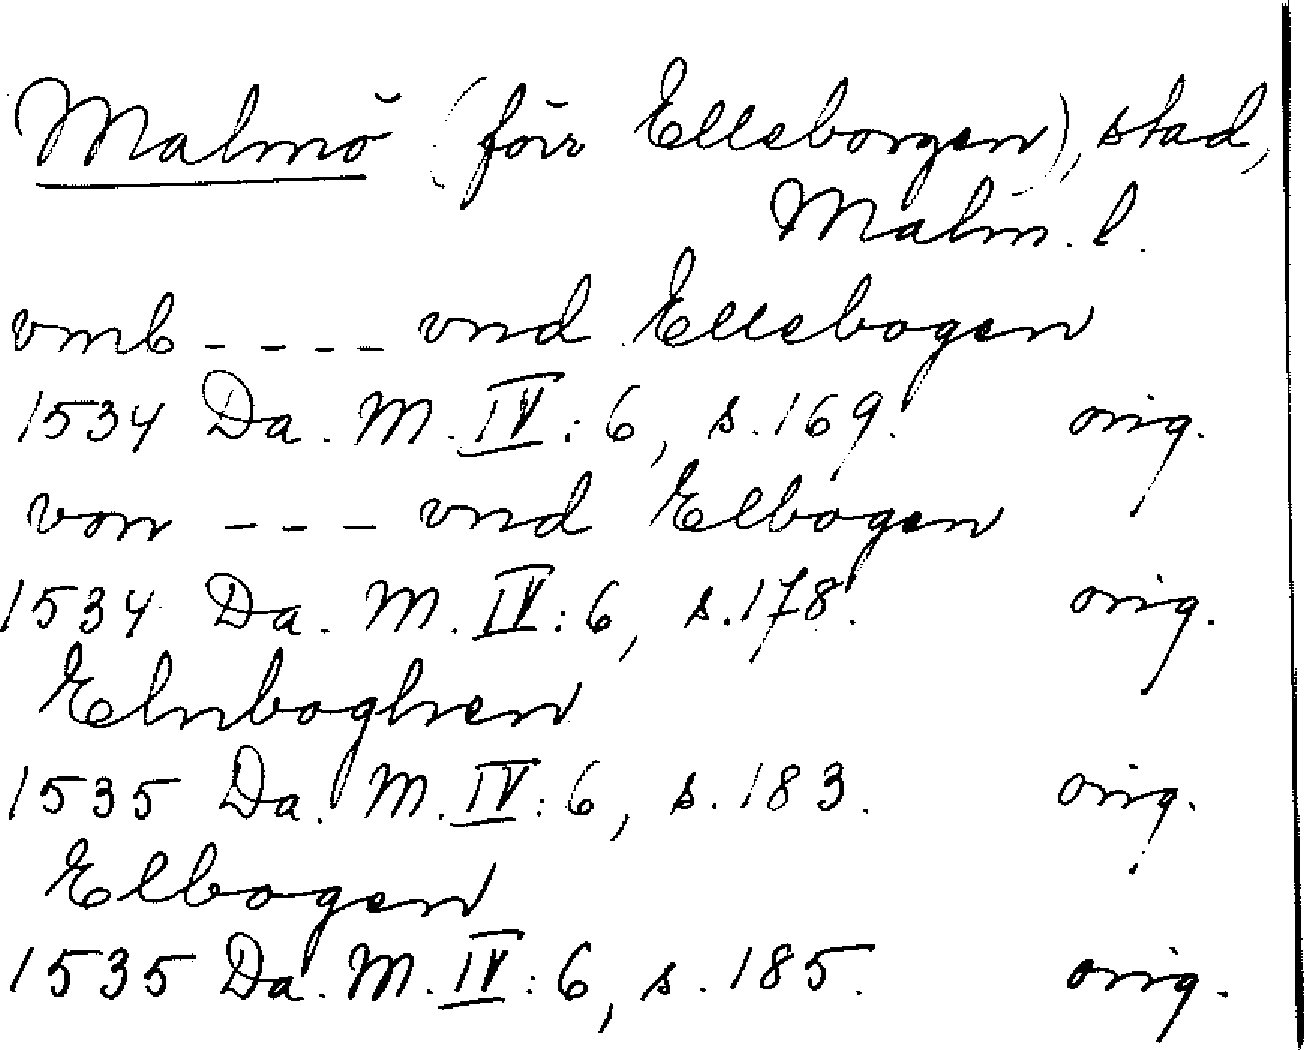 Malmö (förr Elleborgen), stad,
Malm. l.
vmb ---- vnd Ellebogen
1534 Da. M. IV: 6, s. 169. orig.
von --- vnd Elbogen
1534 Da. M. IV: 6, s. 178. orig.
Elnboghen
1535 Da. M. IV: 6, s. 183. orig.
Elbogen
1535 Da. M. IV: 6, s. 185. orig.